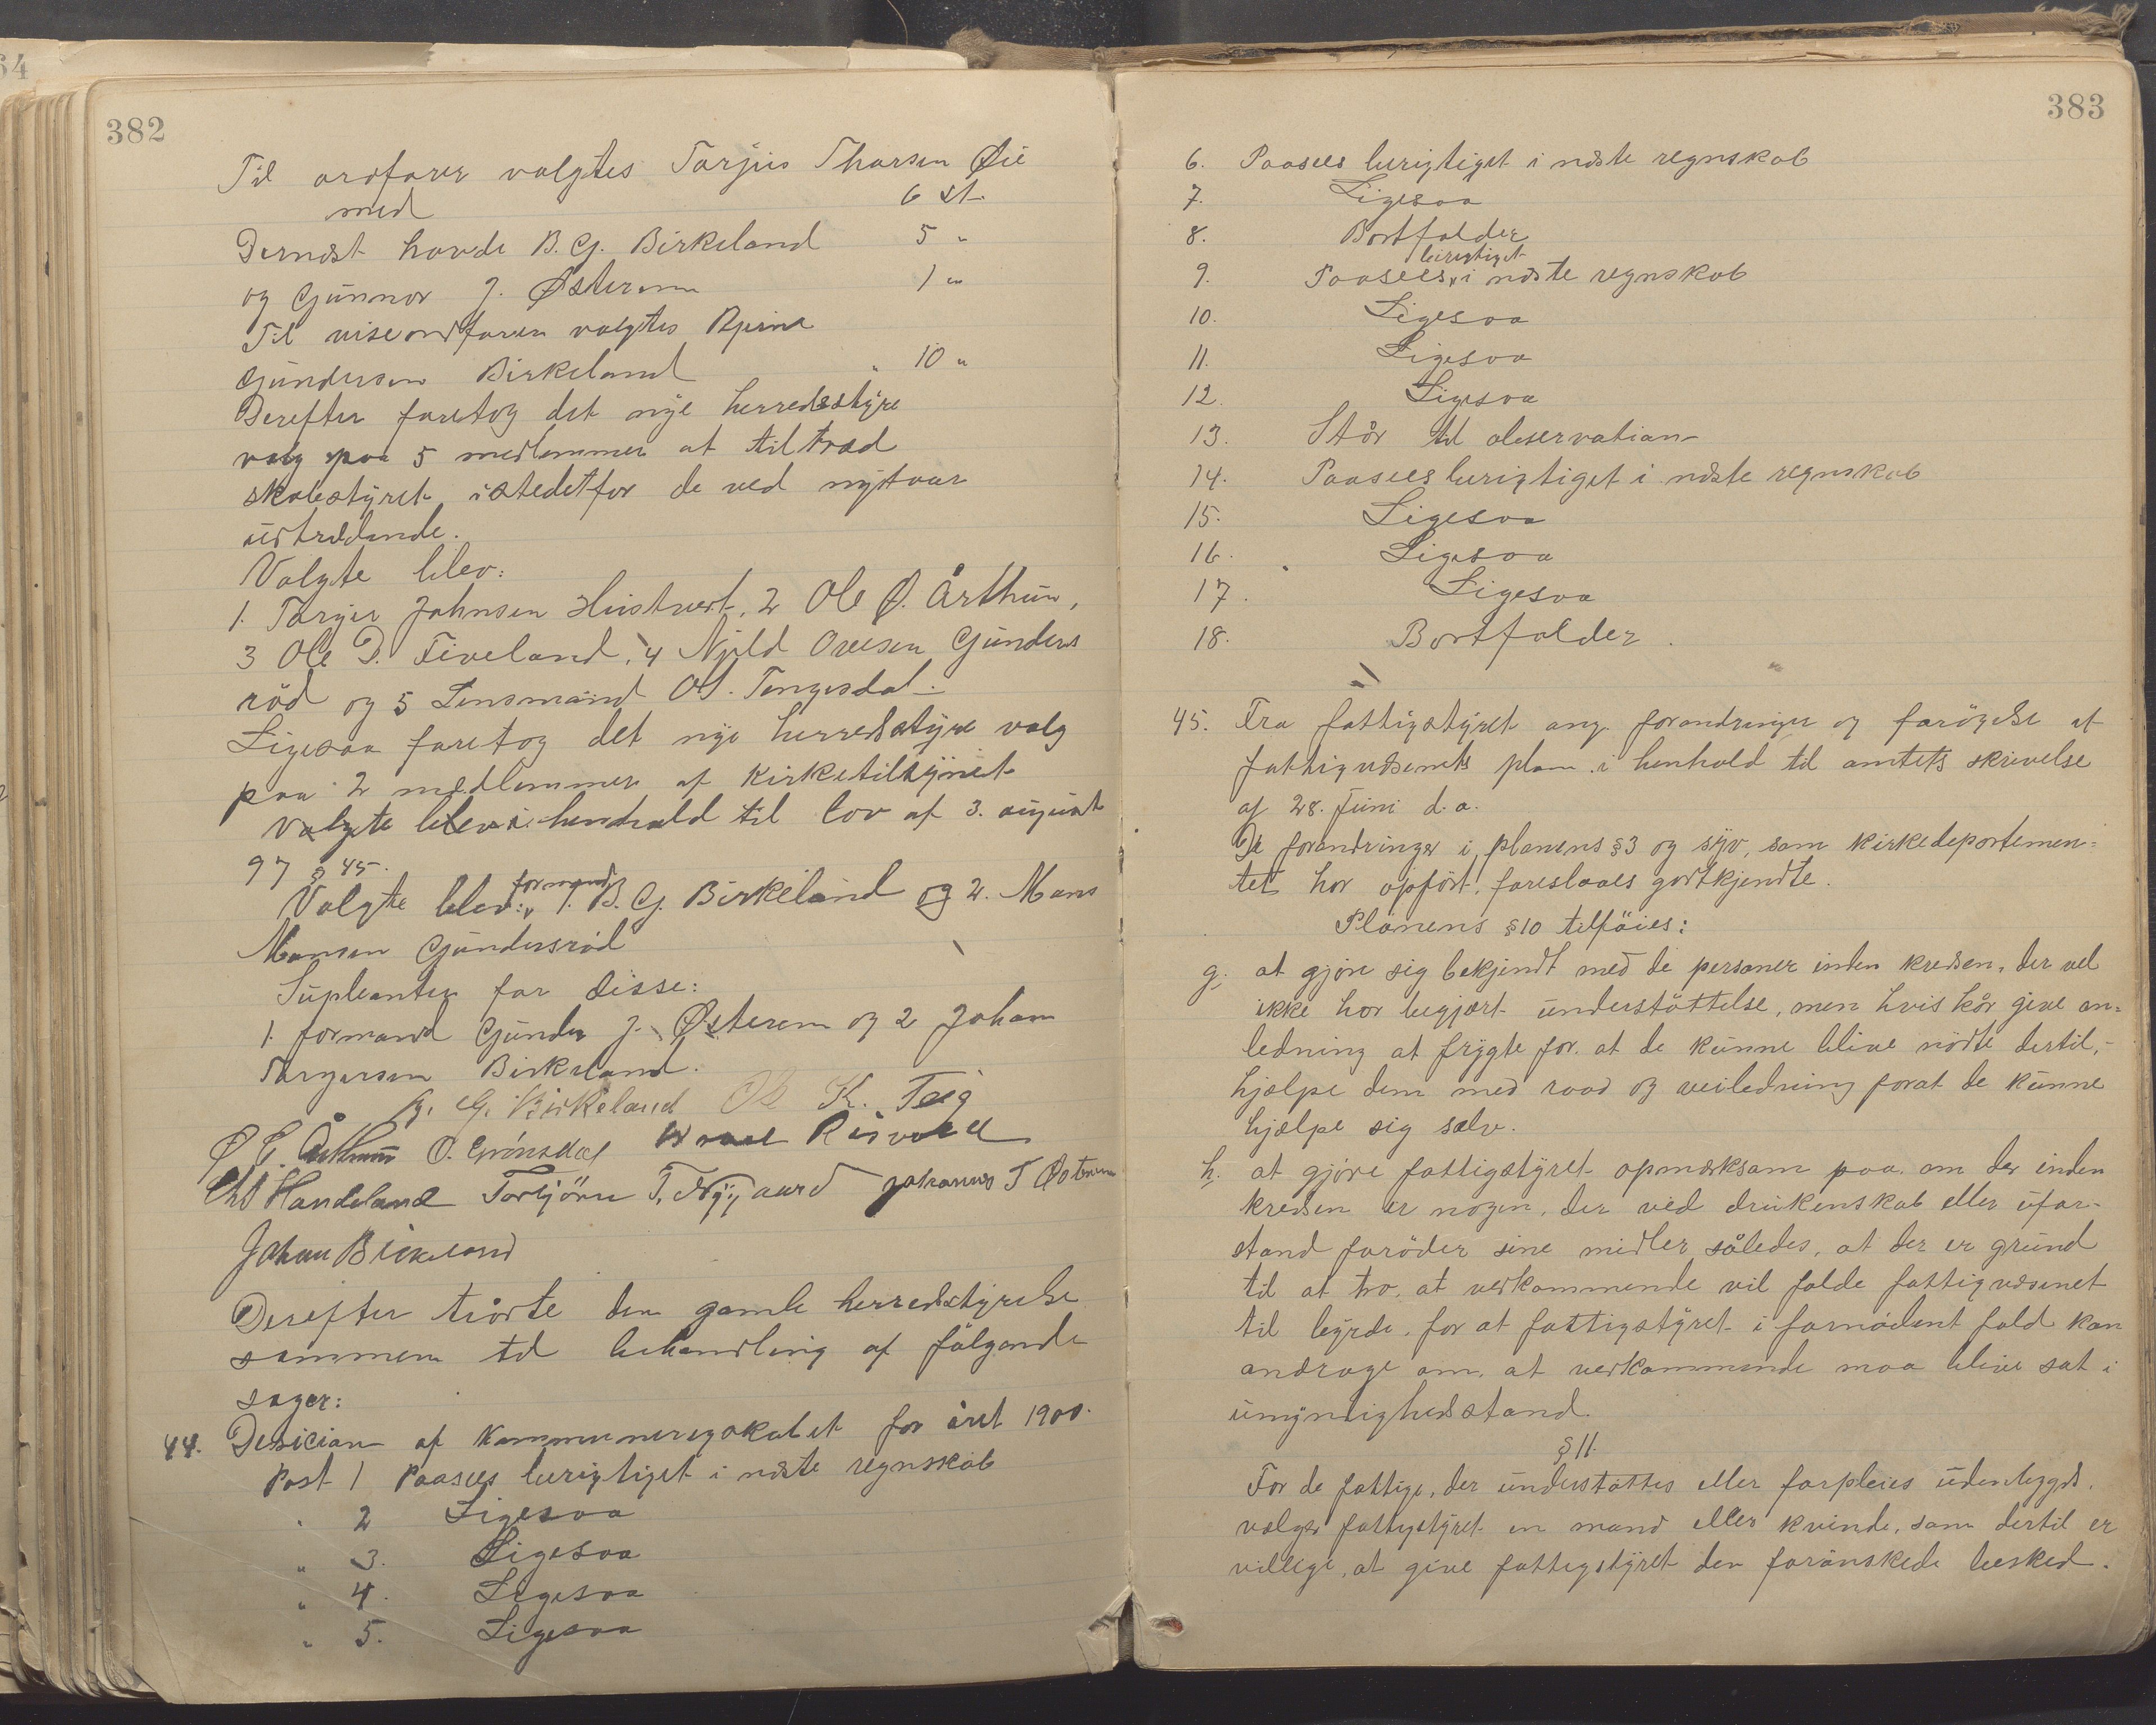 382
Til ordfører valgtes Tarjus Tharsen Øie
med 6 st.
Dernæst havde B. G. Birkeland 5 "
og Gunnar J. Østerem 1 "
Til viseordfører valgtes
Gundersen Birkeland " 10 "
Derefter foretog det nye herredsstyre
valg paa 5 medlemmer at tiltræd
skolestyret istedetfor de ved nytaar
udtrædende.
Valgte blev:
1. Torger Johnsen Hustvert, 2 Ole Ø. Årthun,
3 Ole D. Fiveland, 4 Njeld Ovesen Gunders
röd og 5 Lensmand Ol. Tengesdal.
Ligesaa foretog det nye herredsstyre valg
paa 2 medlemmer af kirketilsynet
Valgte blev i henhald til lov af 3. august
97 § 45.
Valgte blev: formand 1. B. G. Birkeland og 2. Mons
Monsen Gundersröd
Supleanter for disse:
1. formand Gunder J. Østerem og 2 Johan
Torgersen Birkeland.
B. G. Birkeland Ole K. Teig
Ø T. Årthun O. Grönsdal Risvold
Chs Handeland Torbjörn T. Nygaard Johannes T Østerem
Johan Birkeland
Derefter tiådte den gamle herredsstyrelse
sammen til behandling af fölgende
sager:
44. Desicion af kommuneregnskabet for året 1900.
Post 1 Paasees berigtiget i næste regnskab
" 2 Ligesaa
" 3. Ligesaa
" 4. Ligesaa
" 5. Ligesaa
383
6. Paasees berigtiget i næste regnskab
7. Ligesaa
8. Bortfalder
9. Paasees berigtiget i næste regnskab
10. Ligesaa
11. Ligesaa
12. Ligesaa
13. Står til observation
14. Paasees berigtiget i næste regnskab
15. Ligesaa
16. Ligesaa
17. Ligesaa
18. Bortfalder.
45. Fra fattigstyret ang. forandringer og forögelse af
fattigvæsenets plan i henhold til amtets skrivelse
af 28. Juni d. a.
De forandringer i planens § 3 og syv, som kirkedepartemen=
tet har opfört, foreslaaes godtkjendte.
Planens § 10 tilföies:
g. at gjöre sig bekjendt med de personer inden kredsen, der vel
ikke har begjært understöttelse, men hvis kår give an=
ledning at frygte for at de kunne blive nödte dertil, -
hjælpe dem med raad og veiledning forat de kunne
hjælpe sig sælv.
h. at gjöre fattigstyret opmærksom paa om der inden
kredsen er nogen, der ved drukenskab eller ufor-
stand foröder sine midler således, at der er grund
til at tro, at vedkommende vil falde fattigvæsenet
til byrde, for at fattigstyret i fornödent fald kan
andrage om, at vedkommende maa blive sat i
umyndighedsstand.
§ 11.
For de fattige, der understöttes eller forpleies udenbygds,
vælger fattigstyret en mand eller kvinde, som dertil er
villige, at give fattigstyret den forönskede besked.